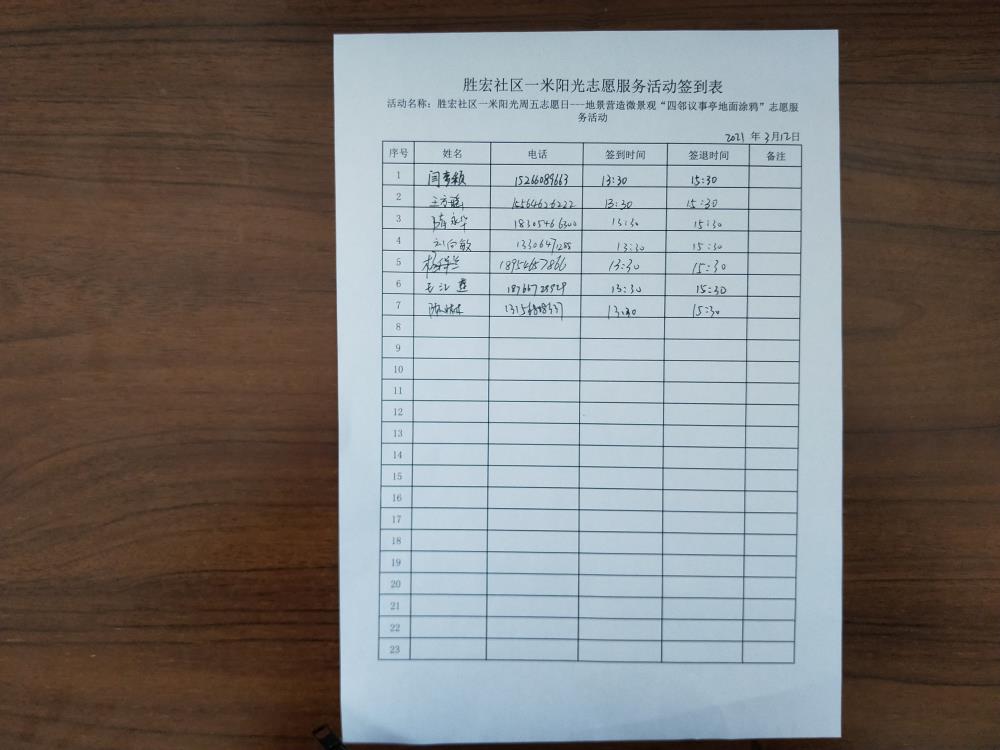 胜宏社区一米阳光志愿服务活动签到表
活动名称：胜宏社区一米阳光周五志愿日---地景营造微景观“四邻议事亭地面涂鸦”志愿服
务活动
2021 年 3月12日
序号 姓名 电话 签到时间 签退时间 备注
1 15266089663 13:30 15:30
2 15564626222 13:30 15:30
3 18305466300 13:30 15:30
4 刘向敏 13306471288 13:30 15:30
5 18954657866 13:30 15:30
6 13:30 15:30
7 13:30 15:30
8
9
10
11
12
13
14
15
16
17
18
19
20
21
22
23